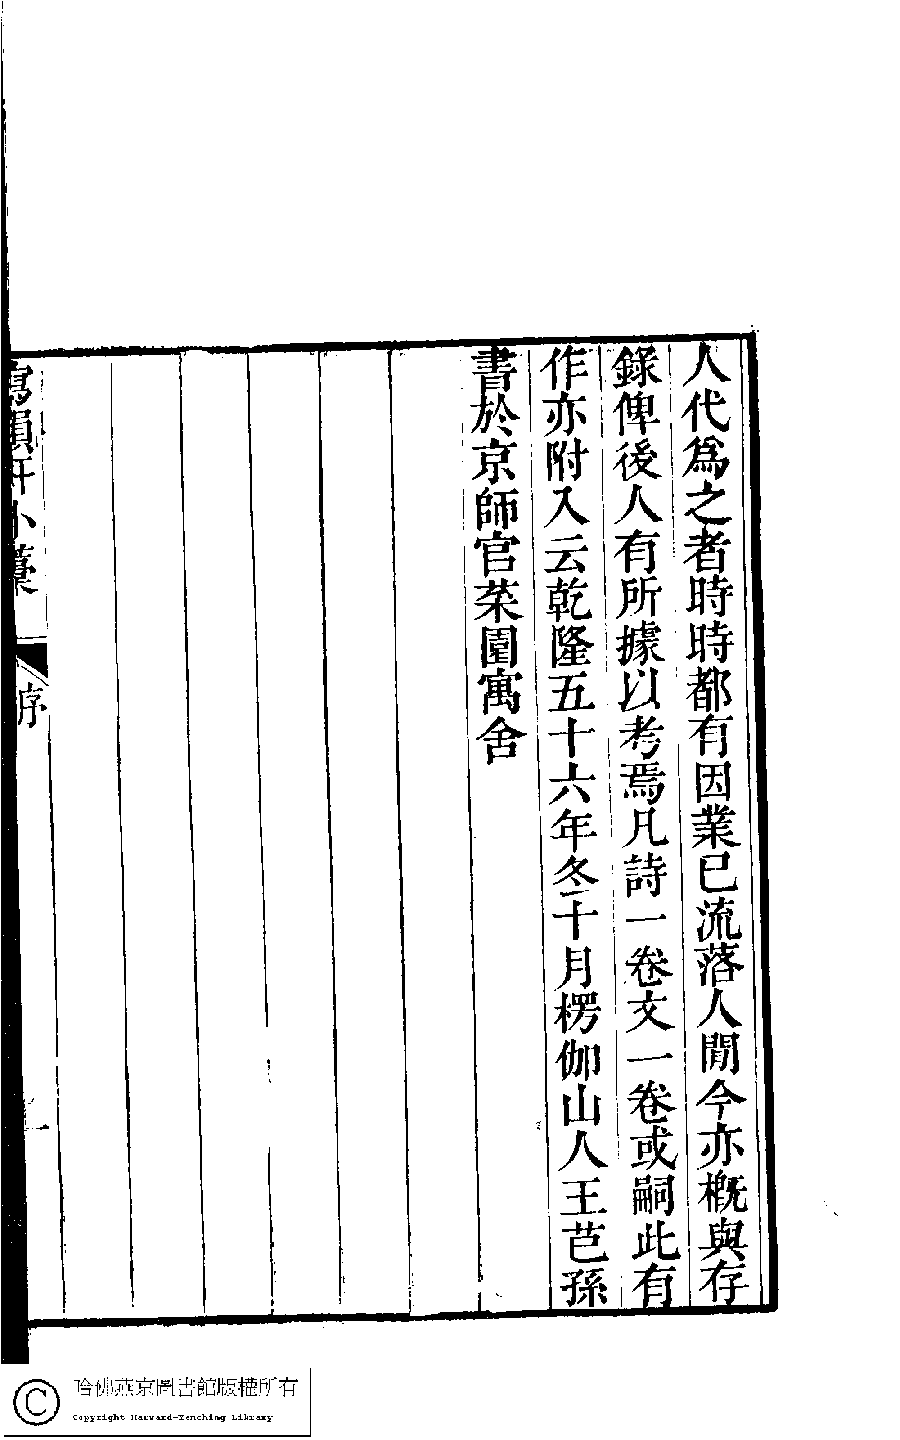 人代爲之者時時都有因業已流落人閒今亦槪與存
錄俾後人有所據以考焉凡詩一卷文一卷或嗣此有
作亦附入云乾隆五十六年冬十月楞伽山人王芑孫
書於京師官菜園寓舍
寫韻軒小藁
序
哈佛燕京圖書館版權所有
Copyright Harvard-Yenching Library